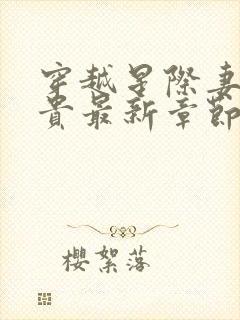 穿越星際妻
貴最新章節
櫻絮落